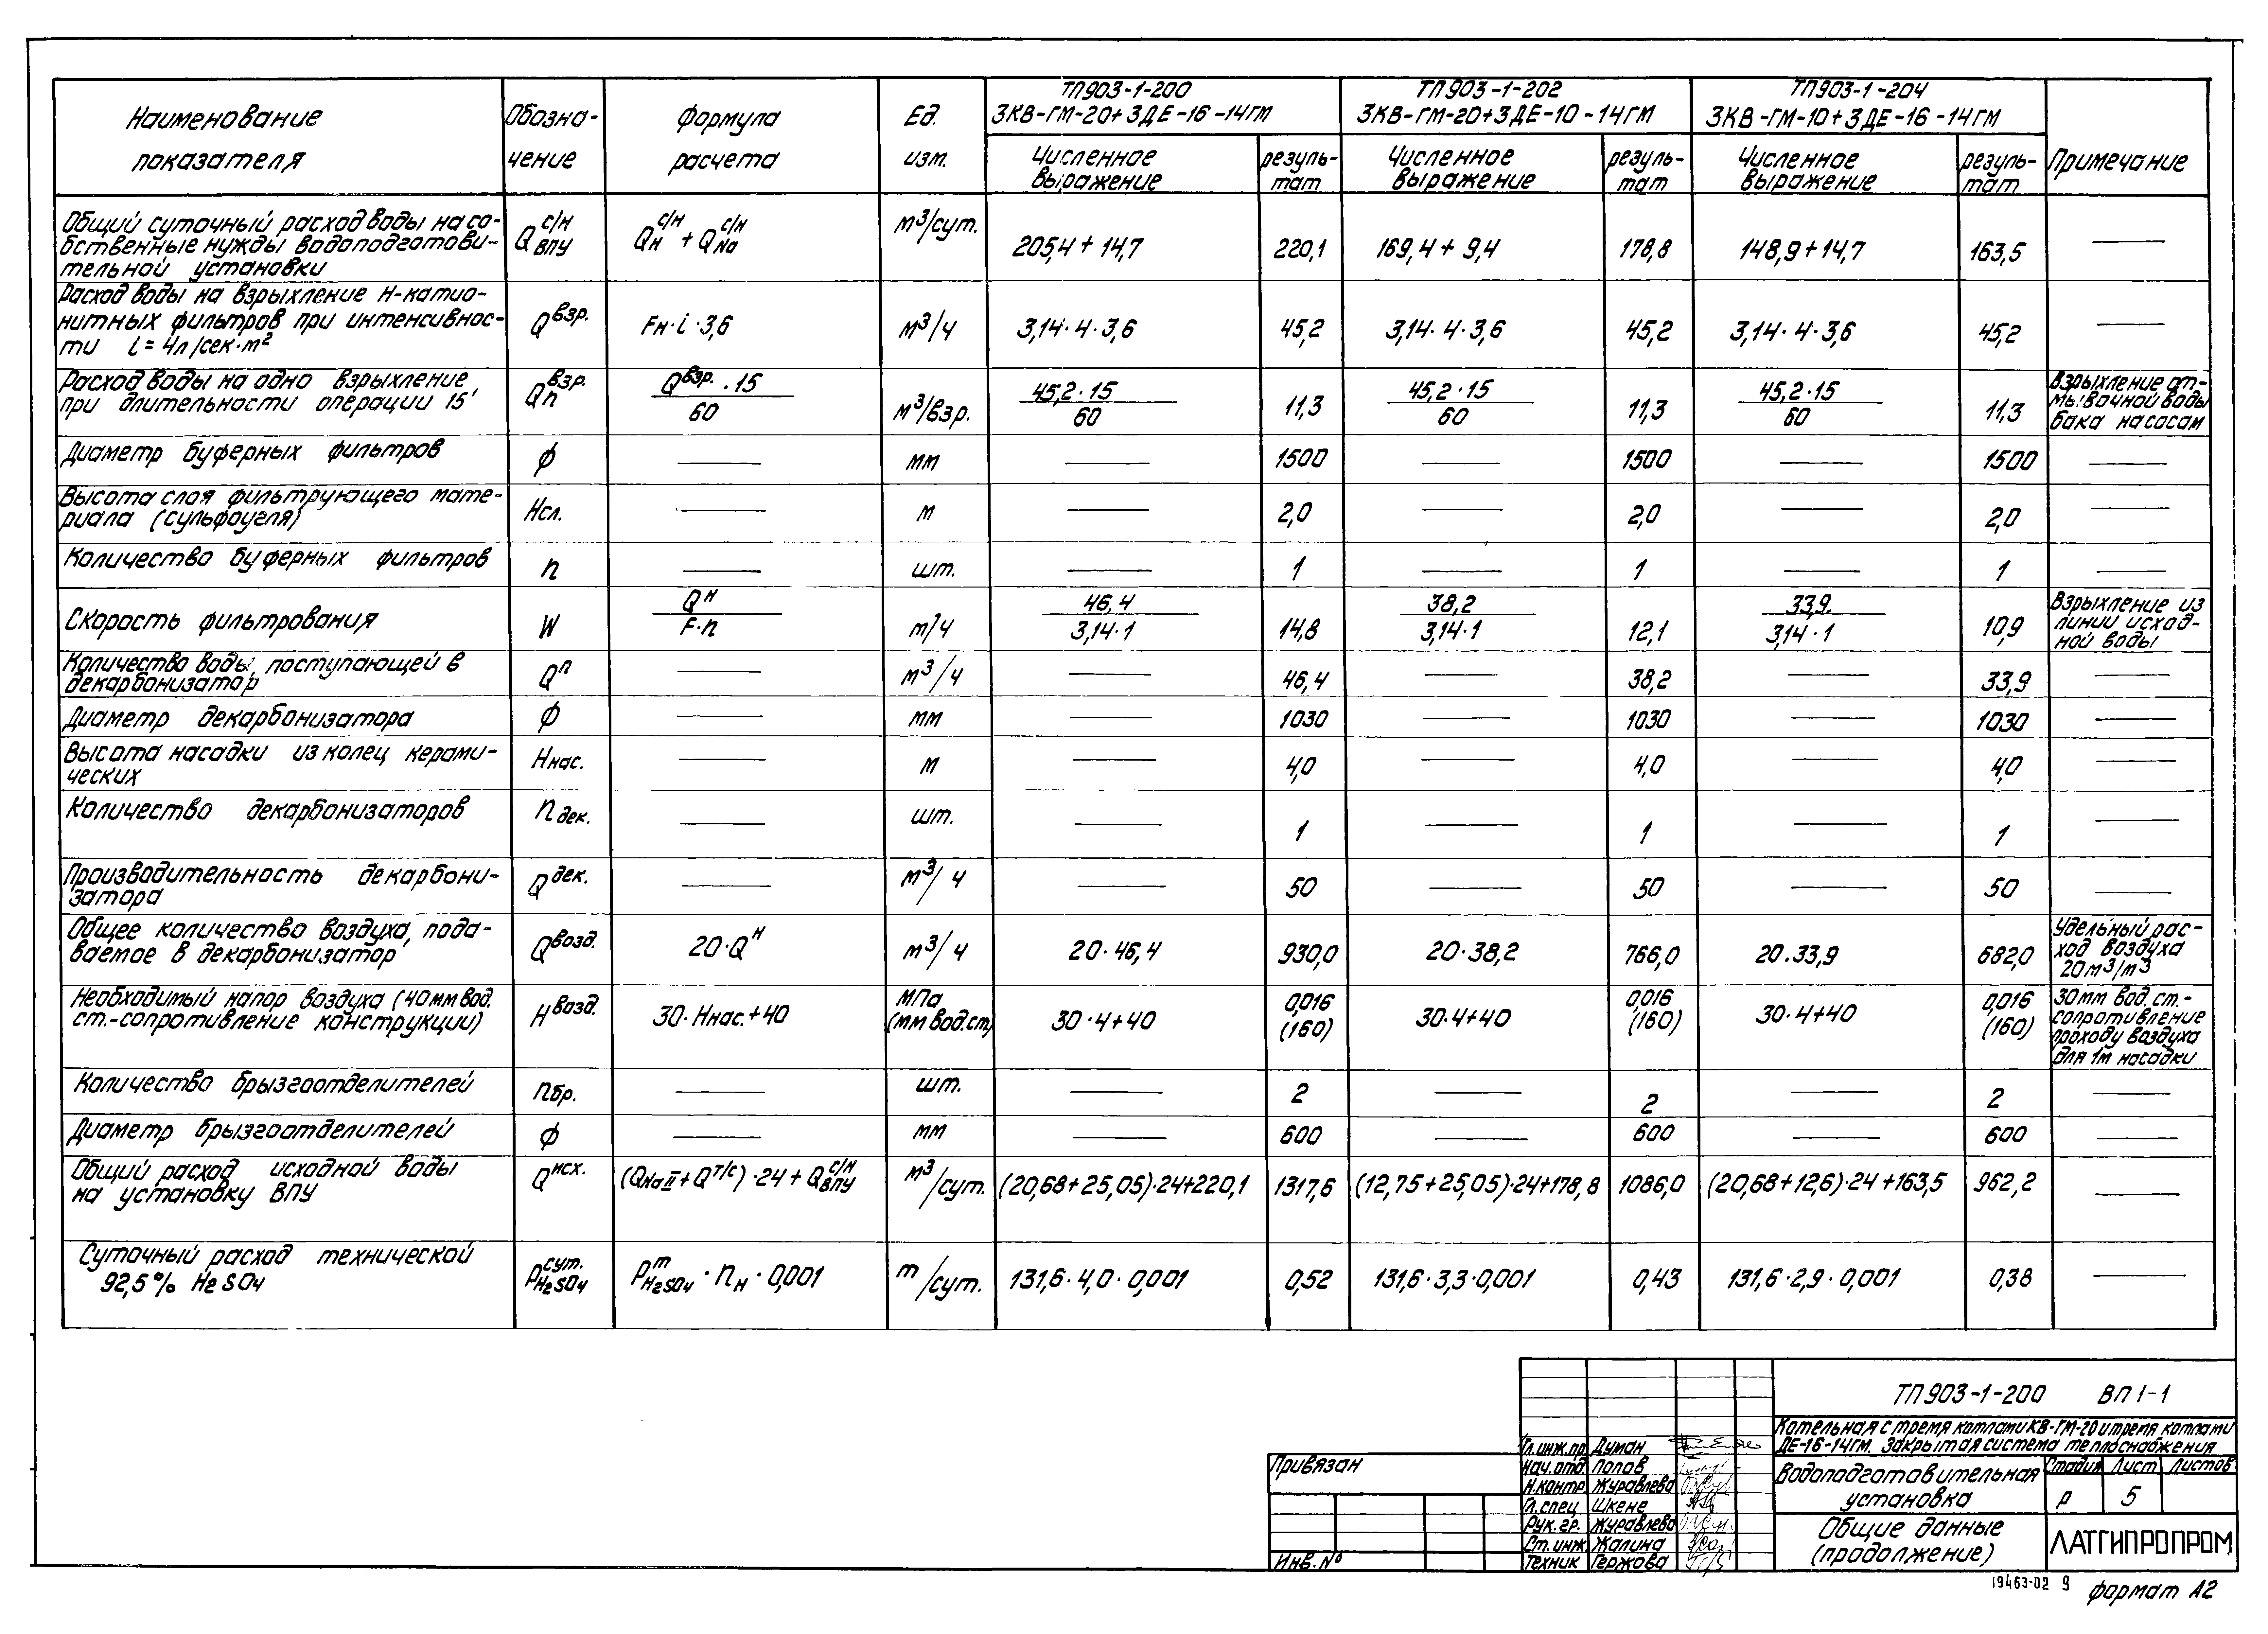 Наименование показателя | Обозна-чение | Формула расчета | Ед. изм. | ТП903-1-200 3КВ-ГМ-20+3ДЕ-16-14ГМ | ТП903-1-202 3КВ-ГМ-20+3ДЕ-10-14ГМ | ТП903-1-204 3КВ-ГМ-10+3ДЕ-16-14ГМ | Примечание
Численное выражение | резуль-тат | Численное выражение | резуль-тат | Численное выражение | резуль-тат
Общий суточный расход воды на со-
бственные нужды водоподготови-
тельной установки
Q с/н ВПУ | Q с/н Н + Q с/н Na | м³/сут. | 205,4 + 14,7 | 220,1 | 169,4 + 9,4 | 178,8 | 148,9 + 14,7 | 163,5 | —
Расход воды на взрыхление Н-катио-
нитных фильтров при интенсивнос-
ти i = 4л/сек·м²
Q взр. | Fн·i·3,6 | м³/ч | 3,14·4·3,6 | 45,2 | 3,14·4·3,6 | 45,2 | 3,14·4·3,6 | 45,2 | —
Расход воды на одно взрыхление
при длительности операции 15'
Q взр. п | Q взр.·15 / 60 | м³/взр. | 45,2·15 / 60 | 11,3 | 45,2·15 / 60 | 11,3 | 45,2·15 / 60 | 11,3 | Взрыхление от-
мывочной воды
бака насосам
Диаметр буферных фильтров | ф | — | мм | — | 1500 | — | 1500 | — | 1500 | —
Высота слоя фильтрующего мате-
риала (сульфоугля)
Нсл. | — | м | — | 2,0 | — | 2,0 | — | 2,0 | —
Количество буферных фильтров | n | — | шт. | — | 1 | — | 1 | — | 1 | —
Скорость фильтрования | W | Q н / F·n | м/ч | 46,4 / 3,14·1 | 14,8 | 38,2 / 3,14·1 | 12,1 | 33,9 / 3,14·1 | 10,9 | Взрыхление из
линии исход-
ной воды
Количество воды, поступающей в
декарбонизатор
Q п | — | м³/ч | — | 46,4 | — | 38,2 | — | 33,9 | —
Диаметр декарбонизатора | ф | — | мм | — | 1030 | — | 1030 | — | 1030 | —
Высота насадки из колец керами-
ческих
Ннас. | — | м | — | 4,0 | — | 4,0 | — | 4,0 | —
Количество декарбонизаторов | n дек. | — | шт. | — | 1 | — | 1 | — | 1 | —
Производительность декарбони-
затора
Q дек. | — | м³/ч | — | 50 | — | 50 | — | 50 | —
Общее количество воздуха, пода-
ваемое в декарбонизатор
Q возд. | 20·Q н | м³/ч | 20·46,4 | 930,0 | 20·38,2 | 766,0 | 20.33,9 | 682,0 | Удельный рас-
ход воздуха
20м³/м³
Необходимый напор воздуха (40мм вод.
ст.-сопротивление конструкции)
Н возд. | 30·Ннас.+40 | МПа (мм вод.ст) | 30·4+40 | 0,016 (160) | 30·4+40 | 0,016 (160) | 30·4+40 | 0,016 (160) | 30мм вод.ст.-
сопротивление
проходу воздуха
для 1м насадки
Количество брызгоотделителей | nбр. | — | шт. | — | 2 | — | 2 | — | 2 | —
Диаметр брызгоотделителей | ф | — | мм | — | 600 | — | 600 | — | 600 | —
Общий расход исходной воды
на установку ВПУ
Q исх. | (QNaII + Q т/с)·24 + Q с/н ВПУ | м³/сут. | (20,68+25,05)·24+220,1 | 1317,6 | (12,75+25,05)·24+178,8 | 1086,0 | (20,68+12,6)·24+163,5 | 962,2 | —
Суточный расход технической
92,5% H2SO4
P сут. H2SO4 | P m H2SO4 · nн · 0,001 | т/сут. | 131,6·4,0·0,001 | 0,52 | 131,6·3,3·0,001 | 0,43 | 131,6·2,9·0,001 | 0,38 | —
ТП903-1-200 ВП1-1
Котельная с тремя котлами КВ-ГМ-20 и тремя котлами
ДЕ-16-14ГМ. Закрытая система теплоснабжения
Гл.инж.пр. Думан
Нач.отд. Попов
Н.контр. Журавлева
Гл.спец. Шкене
Рук.гр. Журавлева
Ст.инж. Жалина
Техник Гержова
Привязан
Инв.№
Водоподготовительная
установка
Стадия Лист Листов
Р 5
Общие данные
(продолжение)
ЛАТГИПРОПРОМ
19463-02 9
формат А2